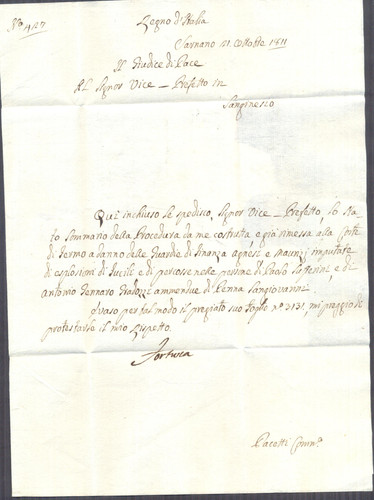 N.º 427
Regno d'Italia
Sarnano 21 Ottobre 1811
Il Giudice di Pace
Al Signor Vice-Prefetto in
Sanginesio
Quì inchiuso le spedisco, Signor Vice-Prefetto, lo Sta
to Sommario della Procedura da me costrutta, e già rimessa alla Corte
di Fermo a danno delle Guardie di Finanza Agnesi e Maurizj imputate
di esplosioni di Fucile e di percosse nelle persone di Paolo e di
Antonio Gennaro ammendue di Penna Sangiovanni
Evaso per tal modo il pregiato suo Foglio N.º 3131, mi preggio di
protestarle il mio rispetto.
Pacetti